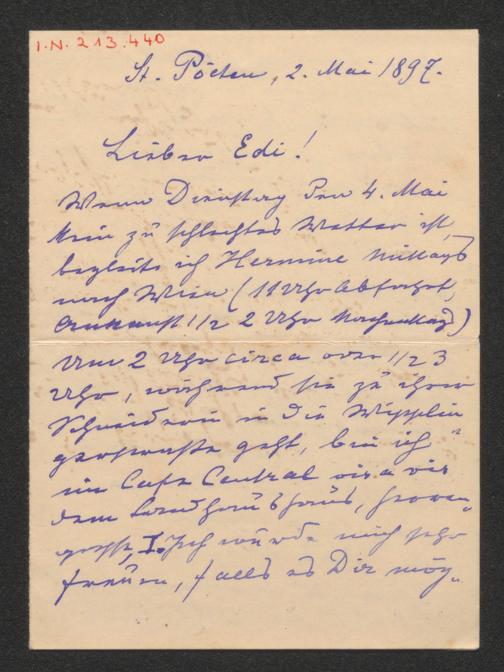 I.N. 213.440
St. Pölten, 2. Mai 1897.
Lieber Edi!
Wenn Dienstag den 4. Mai
kein zu schlechtes Wetter ist,
begleite ich Hermine Mittags
nach Wien (11 Uhr Abfahrt,
Ankunft 1/2 2 Uhr Nachmittag)
Um 2 Uhr circa oder 1/2 3
Uhr, während sie zu ihrer
Schneiderin in die Wipplin
gerstraße geht, bin ich
im Café Central vis a vis
dem Landhaus, Herren-
gasse, I. Ich würde mich sehr
freuen, falls es Dir mög-